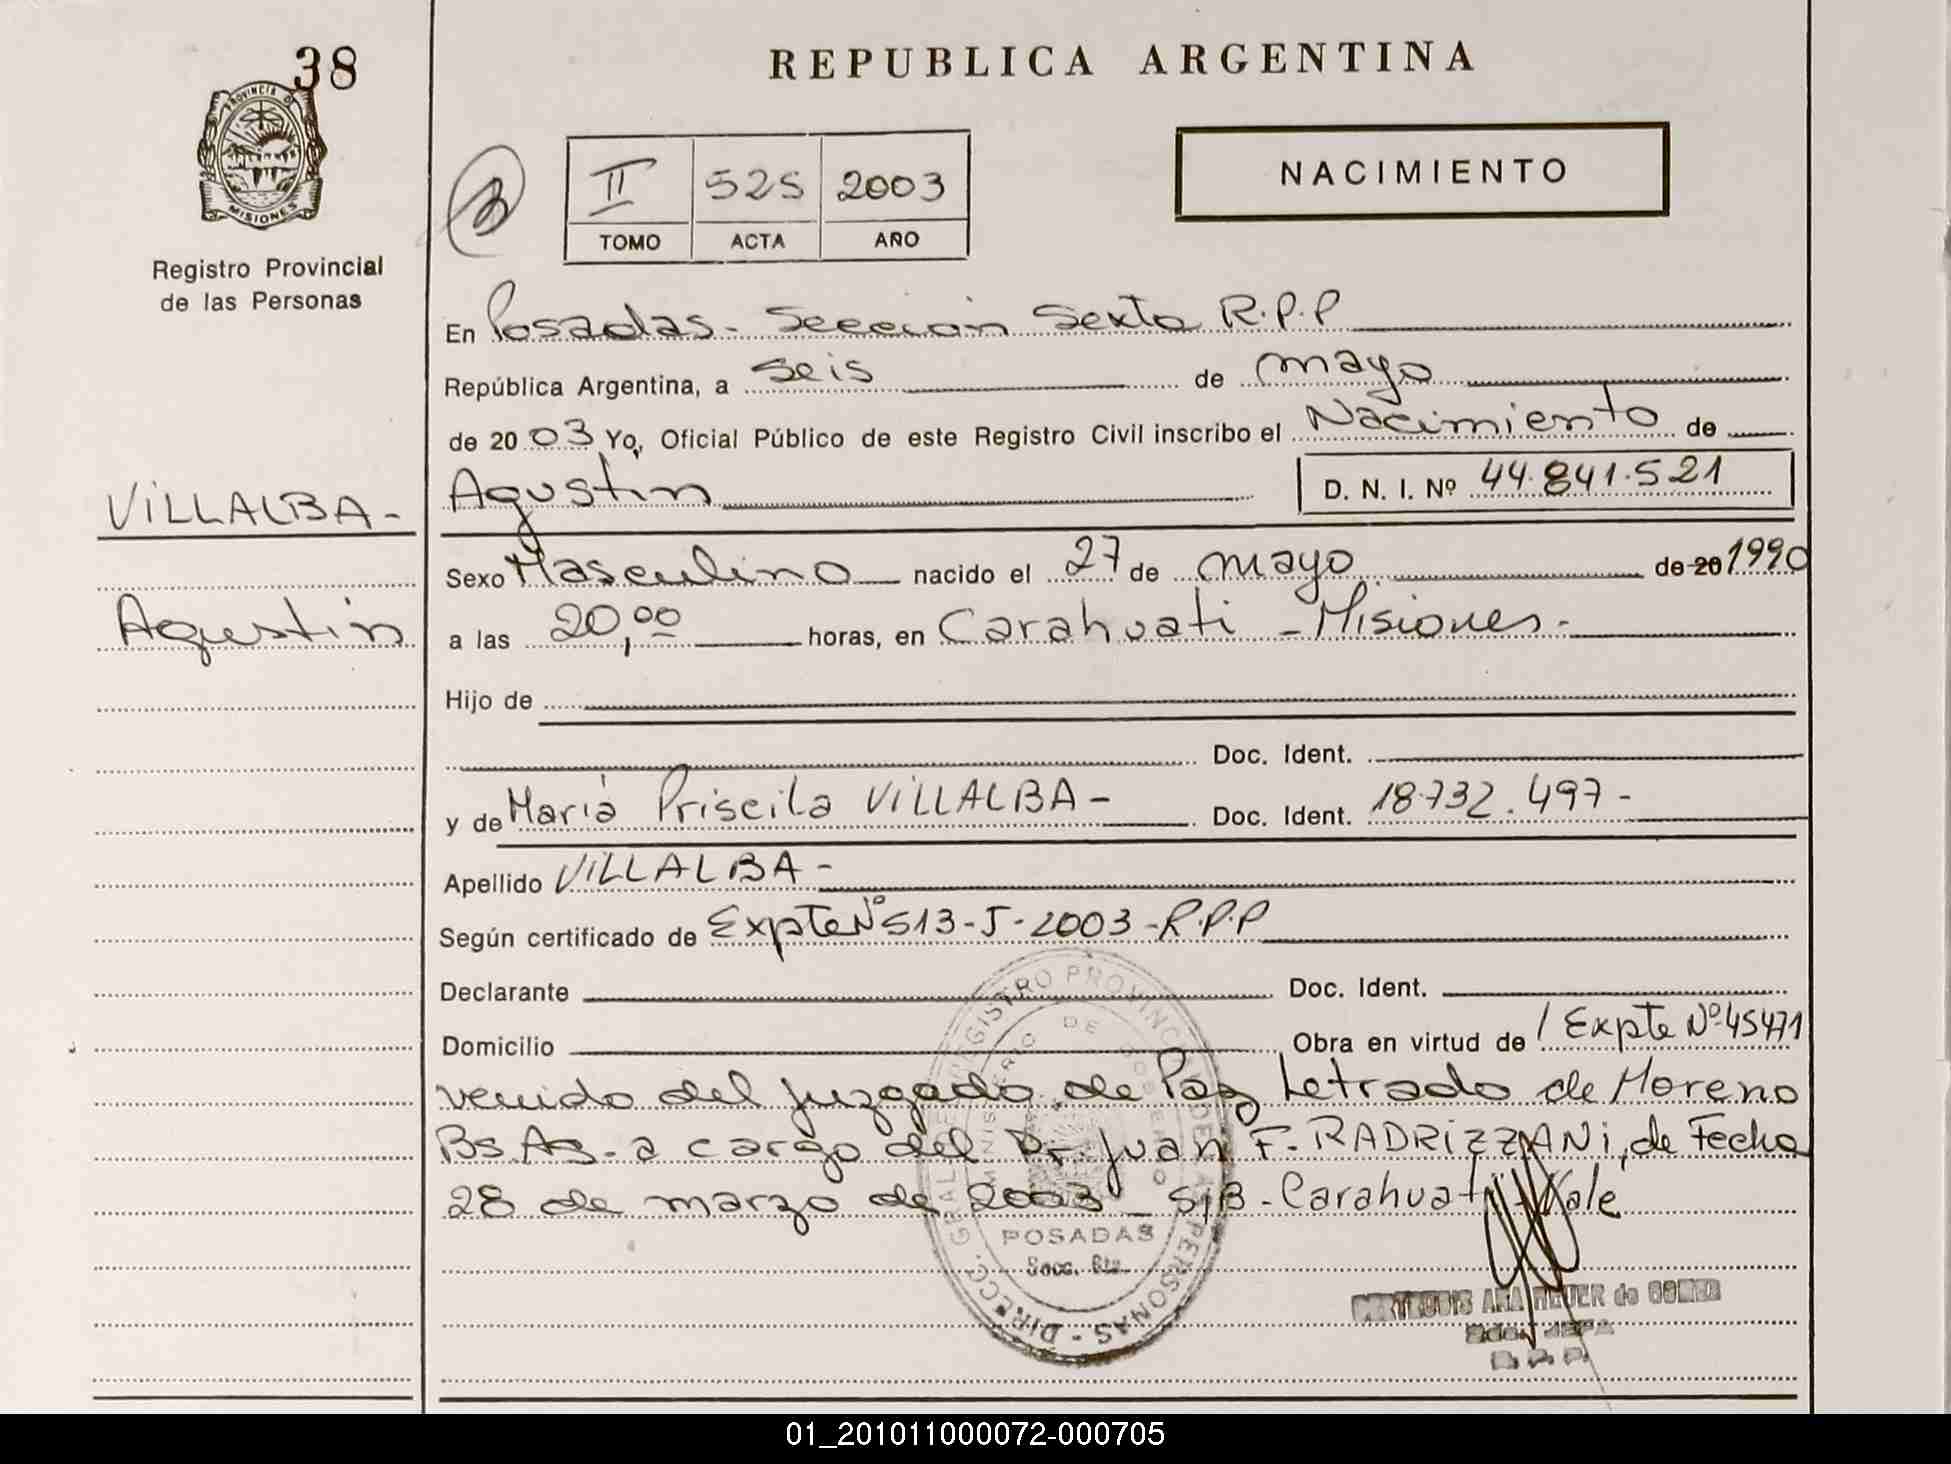 38
PROVINCIA DE
MISIONES
Registro Provincial
de las Personas
REPUBLICA ARGENTINA
NACIMIENTO
II 525 2003
TOMO ACTA AÑO
En Posadas - Sección Sexta R.P.P
República Argentina, a seis de mayo
de 2003 Yo, Oficial Público de este Registro Civil inscribo el Nacimiento de
VILLALBA -
Agustin
Agustín
D. N. I. Nº 44.841.521
Sexo Masculino nacido el 27 de mayo de 20 1990
a las 20,00 horas, en Carahuati - Misiones.-
Hijo de
Doc. Ident.
y de María Priscila VILLALBA - Doc. Ident. 18.732.497 -
Apellido VILLALBA -
Según certificado de Expte Nº 513-J-2003-R.P.P
Declarante Doc. Ident.
Domicilio Obra en virtud de / Expte Nº 45471
venido del juzgado de Paz Letrado de Moreno
Bs.As. a cargo del Dr. Juan F. RADRIZZANI, de Fecha
28 de marzo de 2003 - S/B - Carahuati - Vale
DIRECC. GRAL. REGISTRO PROVINCIAL DE LAS PERSONAS
MINISTERIO DE GOBIERNO
POSADAS
Secc. 6ta.
GERTRUDIS ANA de GOMEZ
JEFA
R.P.P.
01_201011000072-000705